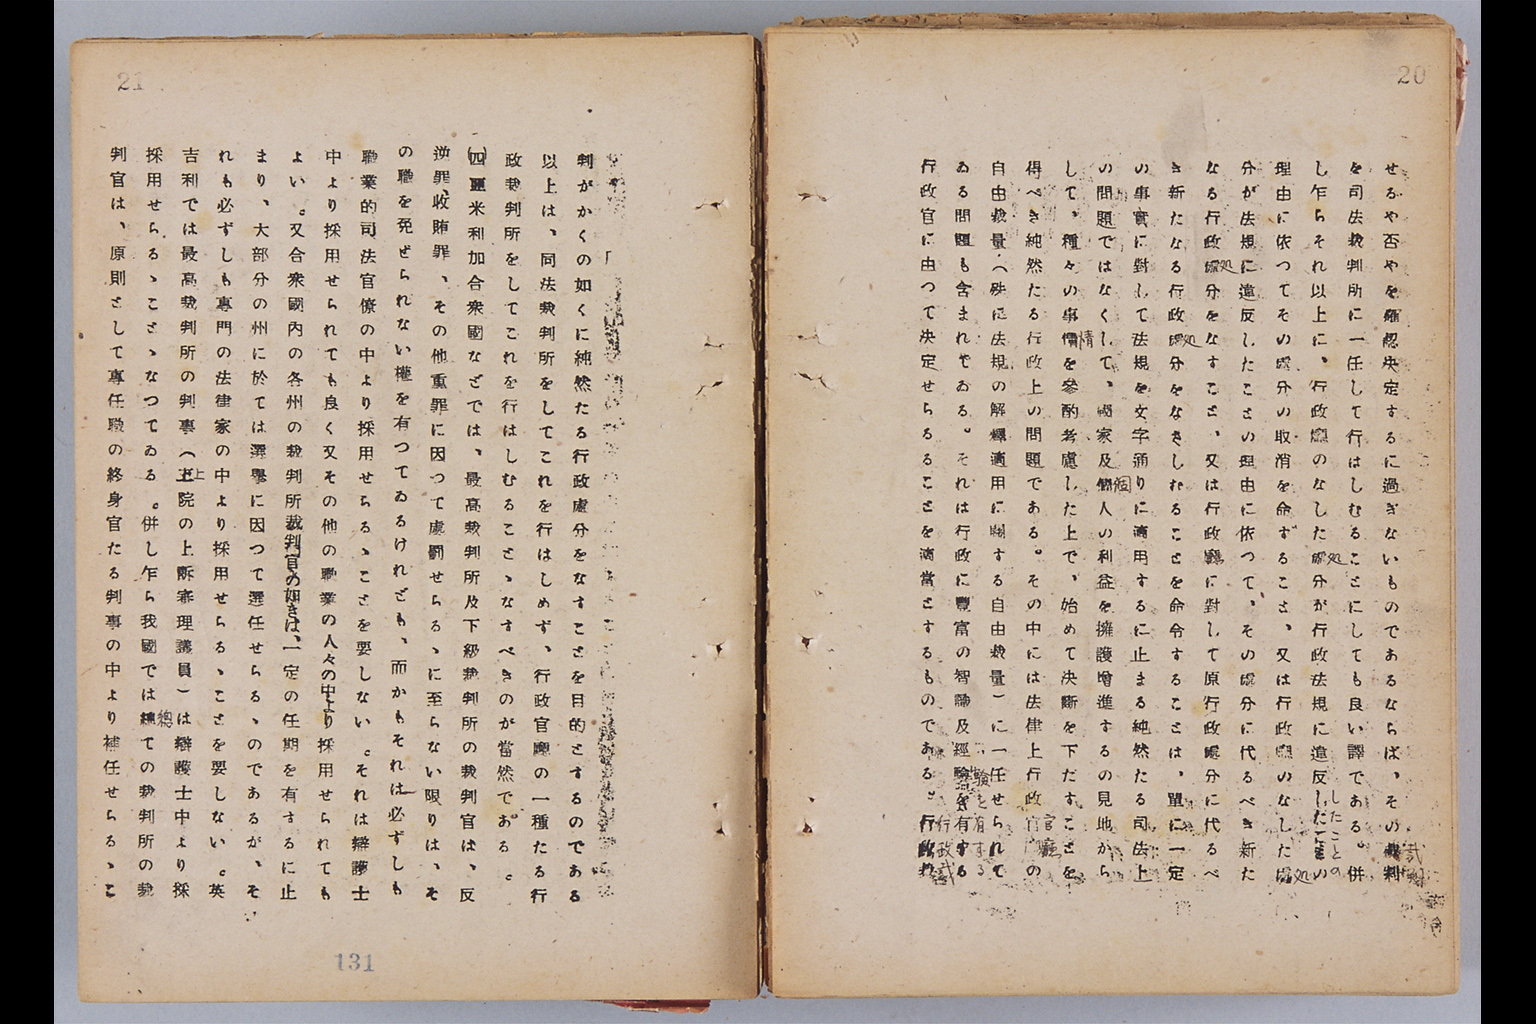 20
せるや否やを確認決定するに過ぎないものであるならば、その裁判
を司法裁判所に一任して行はしむることにしても良い譯である。併
し乍らそれ以上に、行政廳のなした處分が行政法規に違反したことの
理由に依つてその處分の取消を命ずること、又は行政廳のなした處
分が法規に違反したことの理由に依つて、その處分に代るべき新た
なる行政處分をなすこと、又は行政廳に對して原行政處分に代るべ
き新たなる行政處分をなさしむることを命令することは、單に一定
の事實に對して法規を文字通りに適用するに止まる純然たる司法上
の問題ではなくして、國家及個人の利益を擁護增進するの見地から
して、種々の事情を參酌考慮した上で、始めて決斷を下だすことを
得べき純然たる行政上の問題である。その中には法律上行政官廳の
自由裁量(殊に法規の解釋適用に關する自由裁量)に一任せられて
ゐる問題も含まれてゐる。それは行政に豐富の智識及經驗を有する
行政官に由つて決定せらるることを適當とするものである。行政裁
21
判がかくの如くに純然たる行政處分をなすことを目的とするのである
以上は、司法裁判所をしてこれを行はしめず、行政官廳の一種たる行
政裁判所をしてこれを行はしむることゝなすべきのが當然である。
(四)亞米利加合衆國などでは、最高裁判所及下級裁判所の裁判官は、反
逆罪、收賄罪、その他重罪に因つて處罰せらるゝに至らない限りは、そ
の職を免ぜられない權を有つてゐるけれども、而かもそれは必ずしも
職業的司法官僚の中より採用せらるゝことを要しない。それは辯護士
中より採用せられても良く又その他の職業の人々の中より採用せられても
よい。又合衆國內の各州の裁判所裁判官の如きは、一定の任期を有するに止
まり、大部分の州に於ては選擧に因つて選任せらるゝのであるが、そ
れも必ずしも專門の法律家の中より採用せらるゝことを要しない。英
吉利では最高裁判所の判事(上院の上訴審理議員)は辯護士中より採
採用せらるゝことゝなつてゐる。併し乍ら我國では總ての裁判所の裁
判官は、原則として專任職の終身官たる判事の中より補任せらるゝこ
131